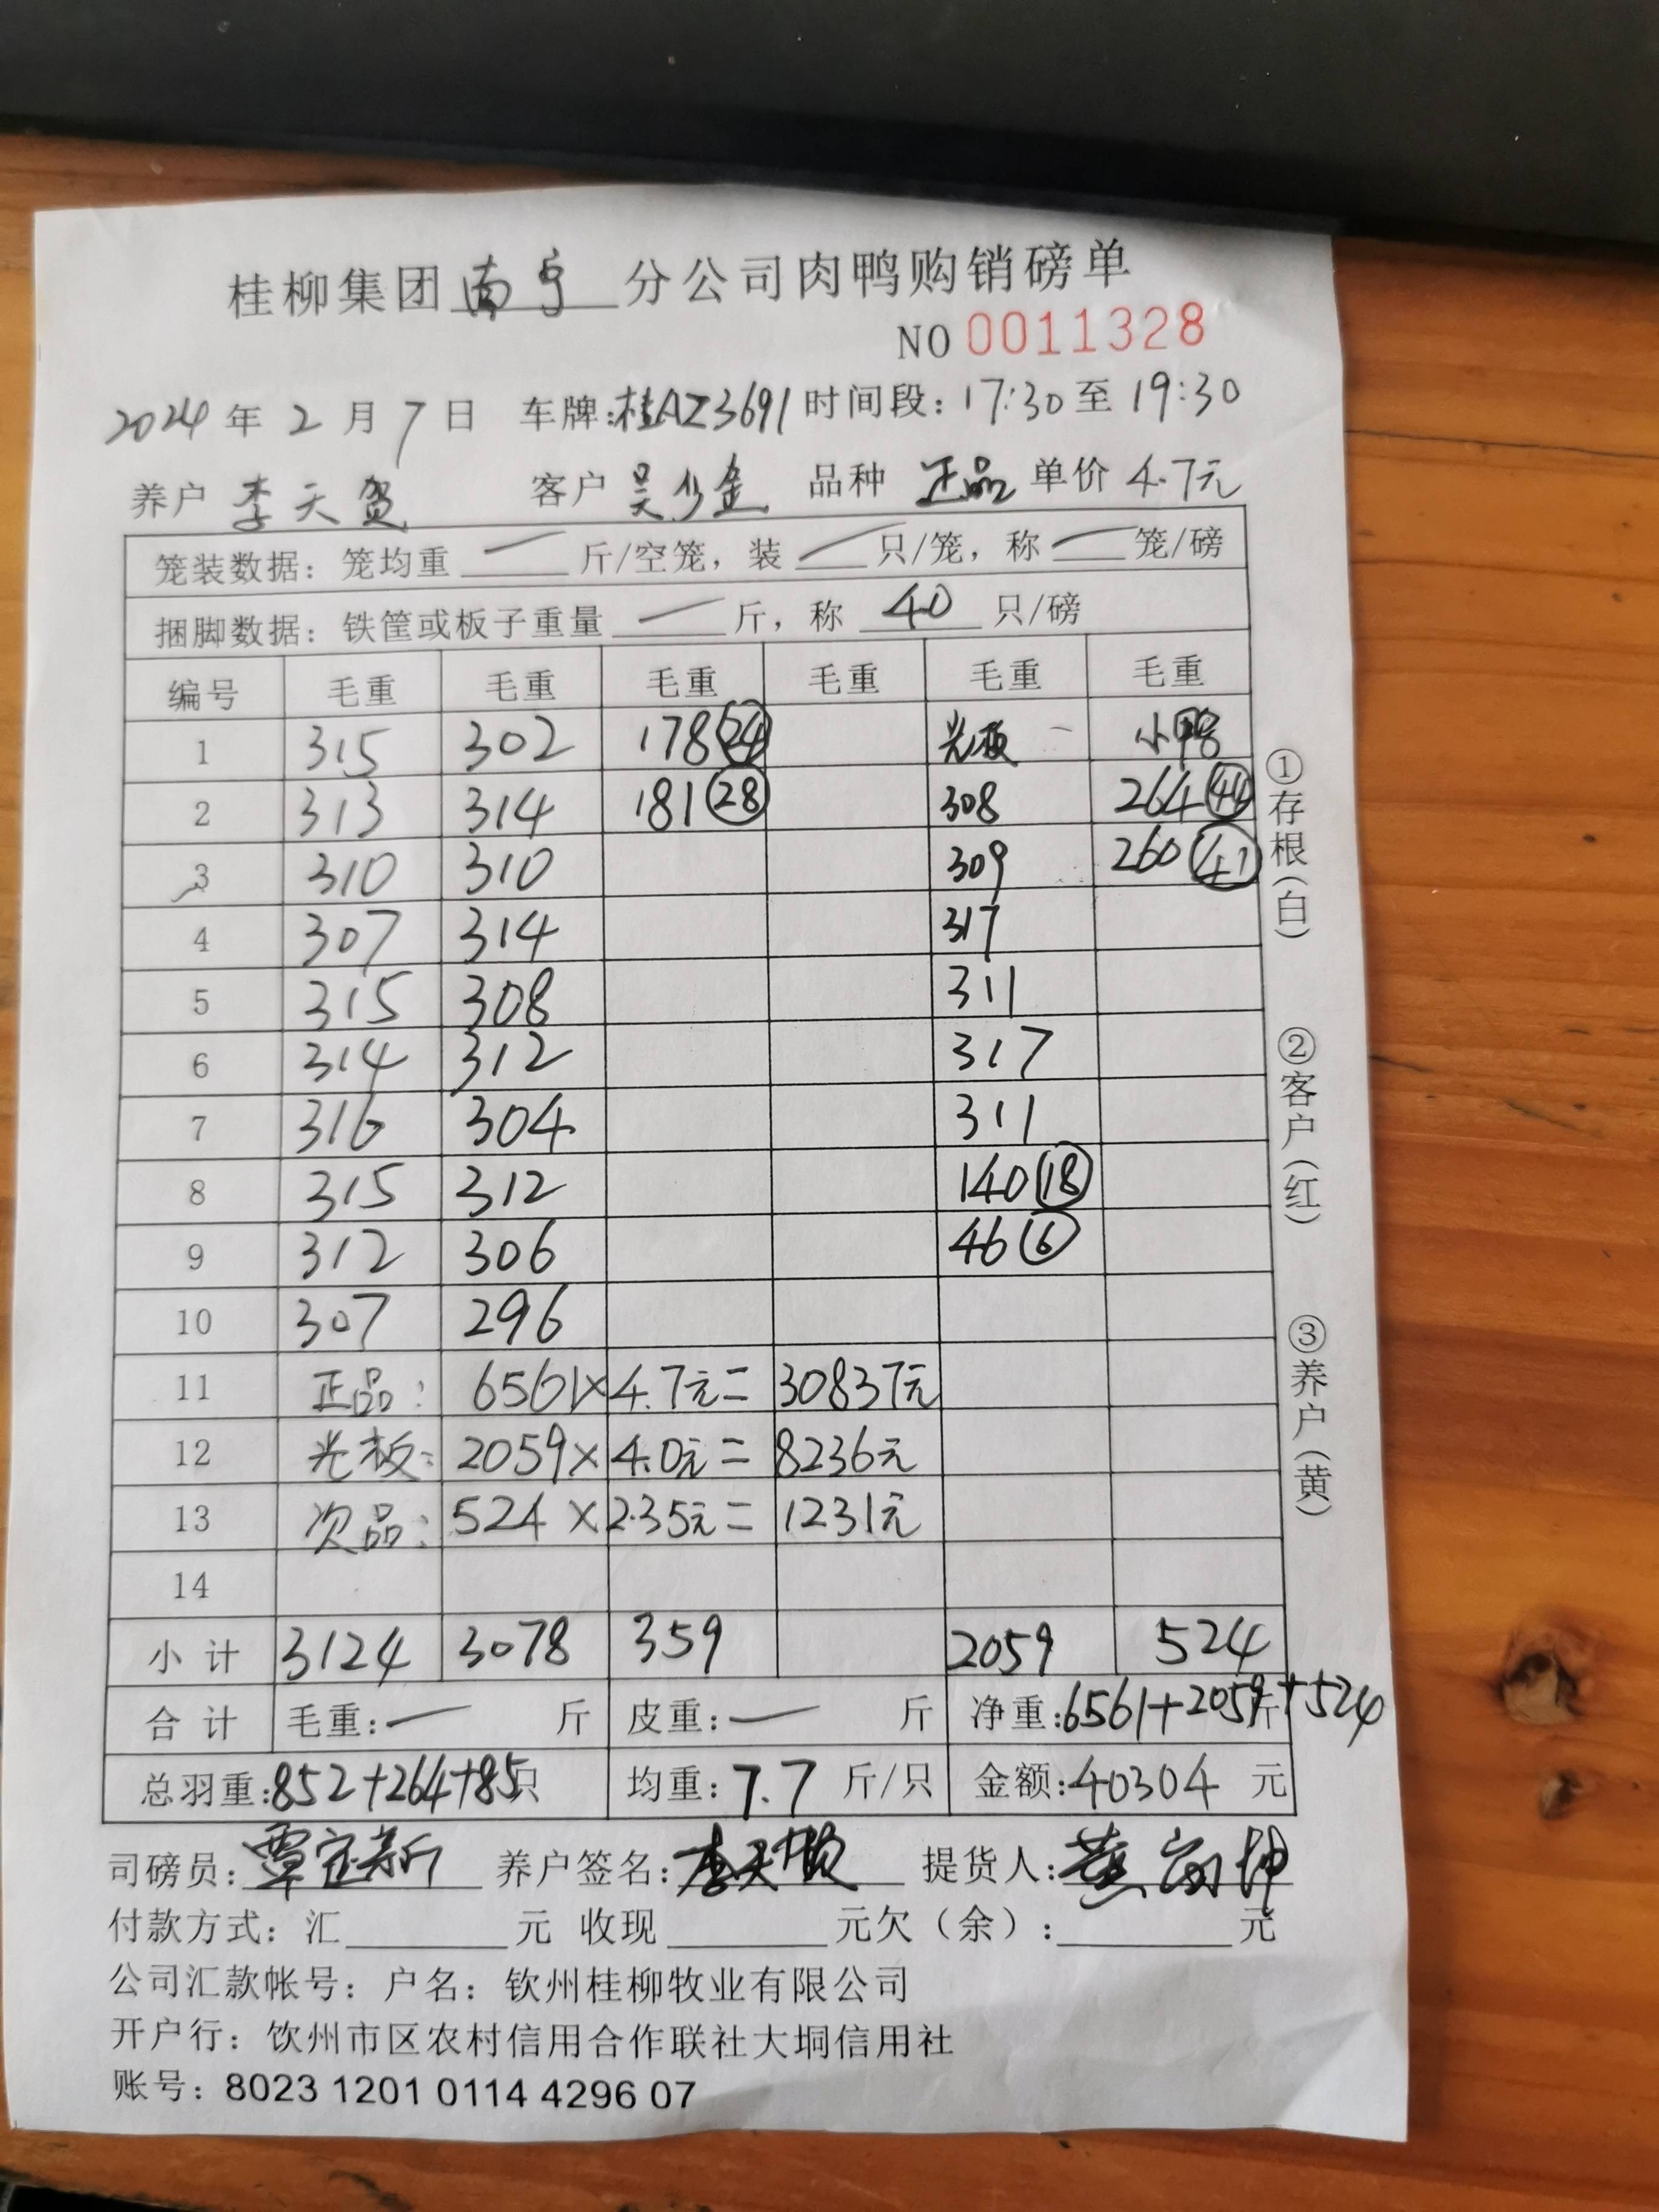 桂柳集团南宁分公司肉鸭购销磅单
NO 0011328
2024年2月7日 车牌:桂AZ3691 时间段:17:30至19:30
养户 李天贺 客户 吴少金 品种 正品 单价 4.7元
笼装数据:笼均重 一 斤/空笼,装 一 只/笼,称 一 笼/磅
捆脚数据:铁筐或板子重量 一 斤,称 40 只/磅
编号 毛重 毛重 毛重 毛重 毛重 毛重
1 315 302 178(24) 光板 一 小鸭
2 313 314 181(28) 308 264(44)
3 310 310 309 260(41)
4 307 314 317
5 315 308 311
6 314 312 317
7 316 304 311
8 315 312 140(18)
9 312 306 46(6)
10 307 296
11 正品: 6561×4.7元=30837元
12 光板: 2059×4.0元=8236元
13 次品: 524×2.35元=1231元
14
小计 3124 3078 359 2059 524
合计 毛重:一 斤 皮重:一 斤 净重:6561+2059+524斤
总羽重:852+264+85只 均重:7.7斤/只 金额:40304元
司磅员:覃宝新 养户签名:李天贺 提货人:黄
付款方式:汇 元 收现 元欠(余): 元
公司汇款帐号:户名:钦州桂柳牧业有限公司
开户行:饮州市区农村信用合作联社大垌信用社
账号:8023 1201 0114 4296 07
①存根(白)
②客户(红)
③养户(黄)